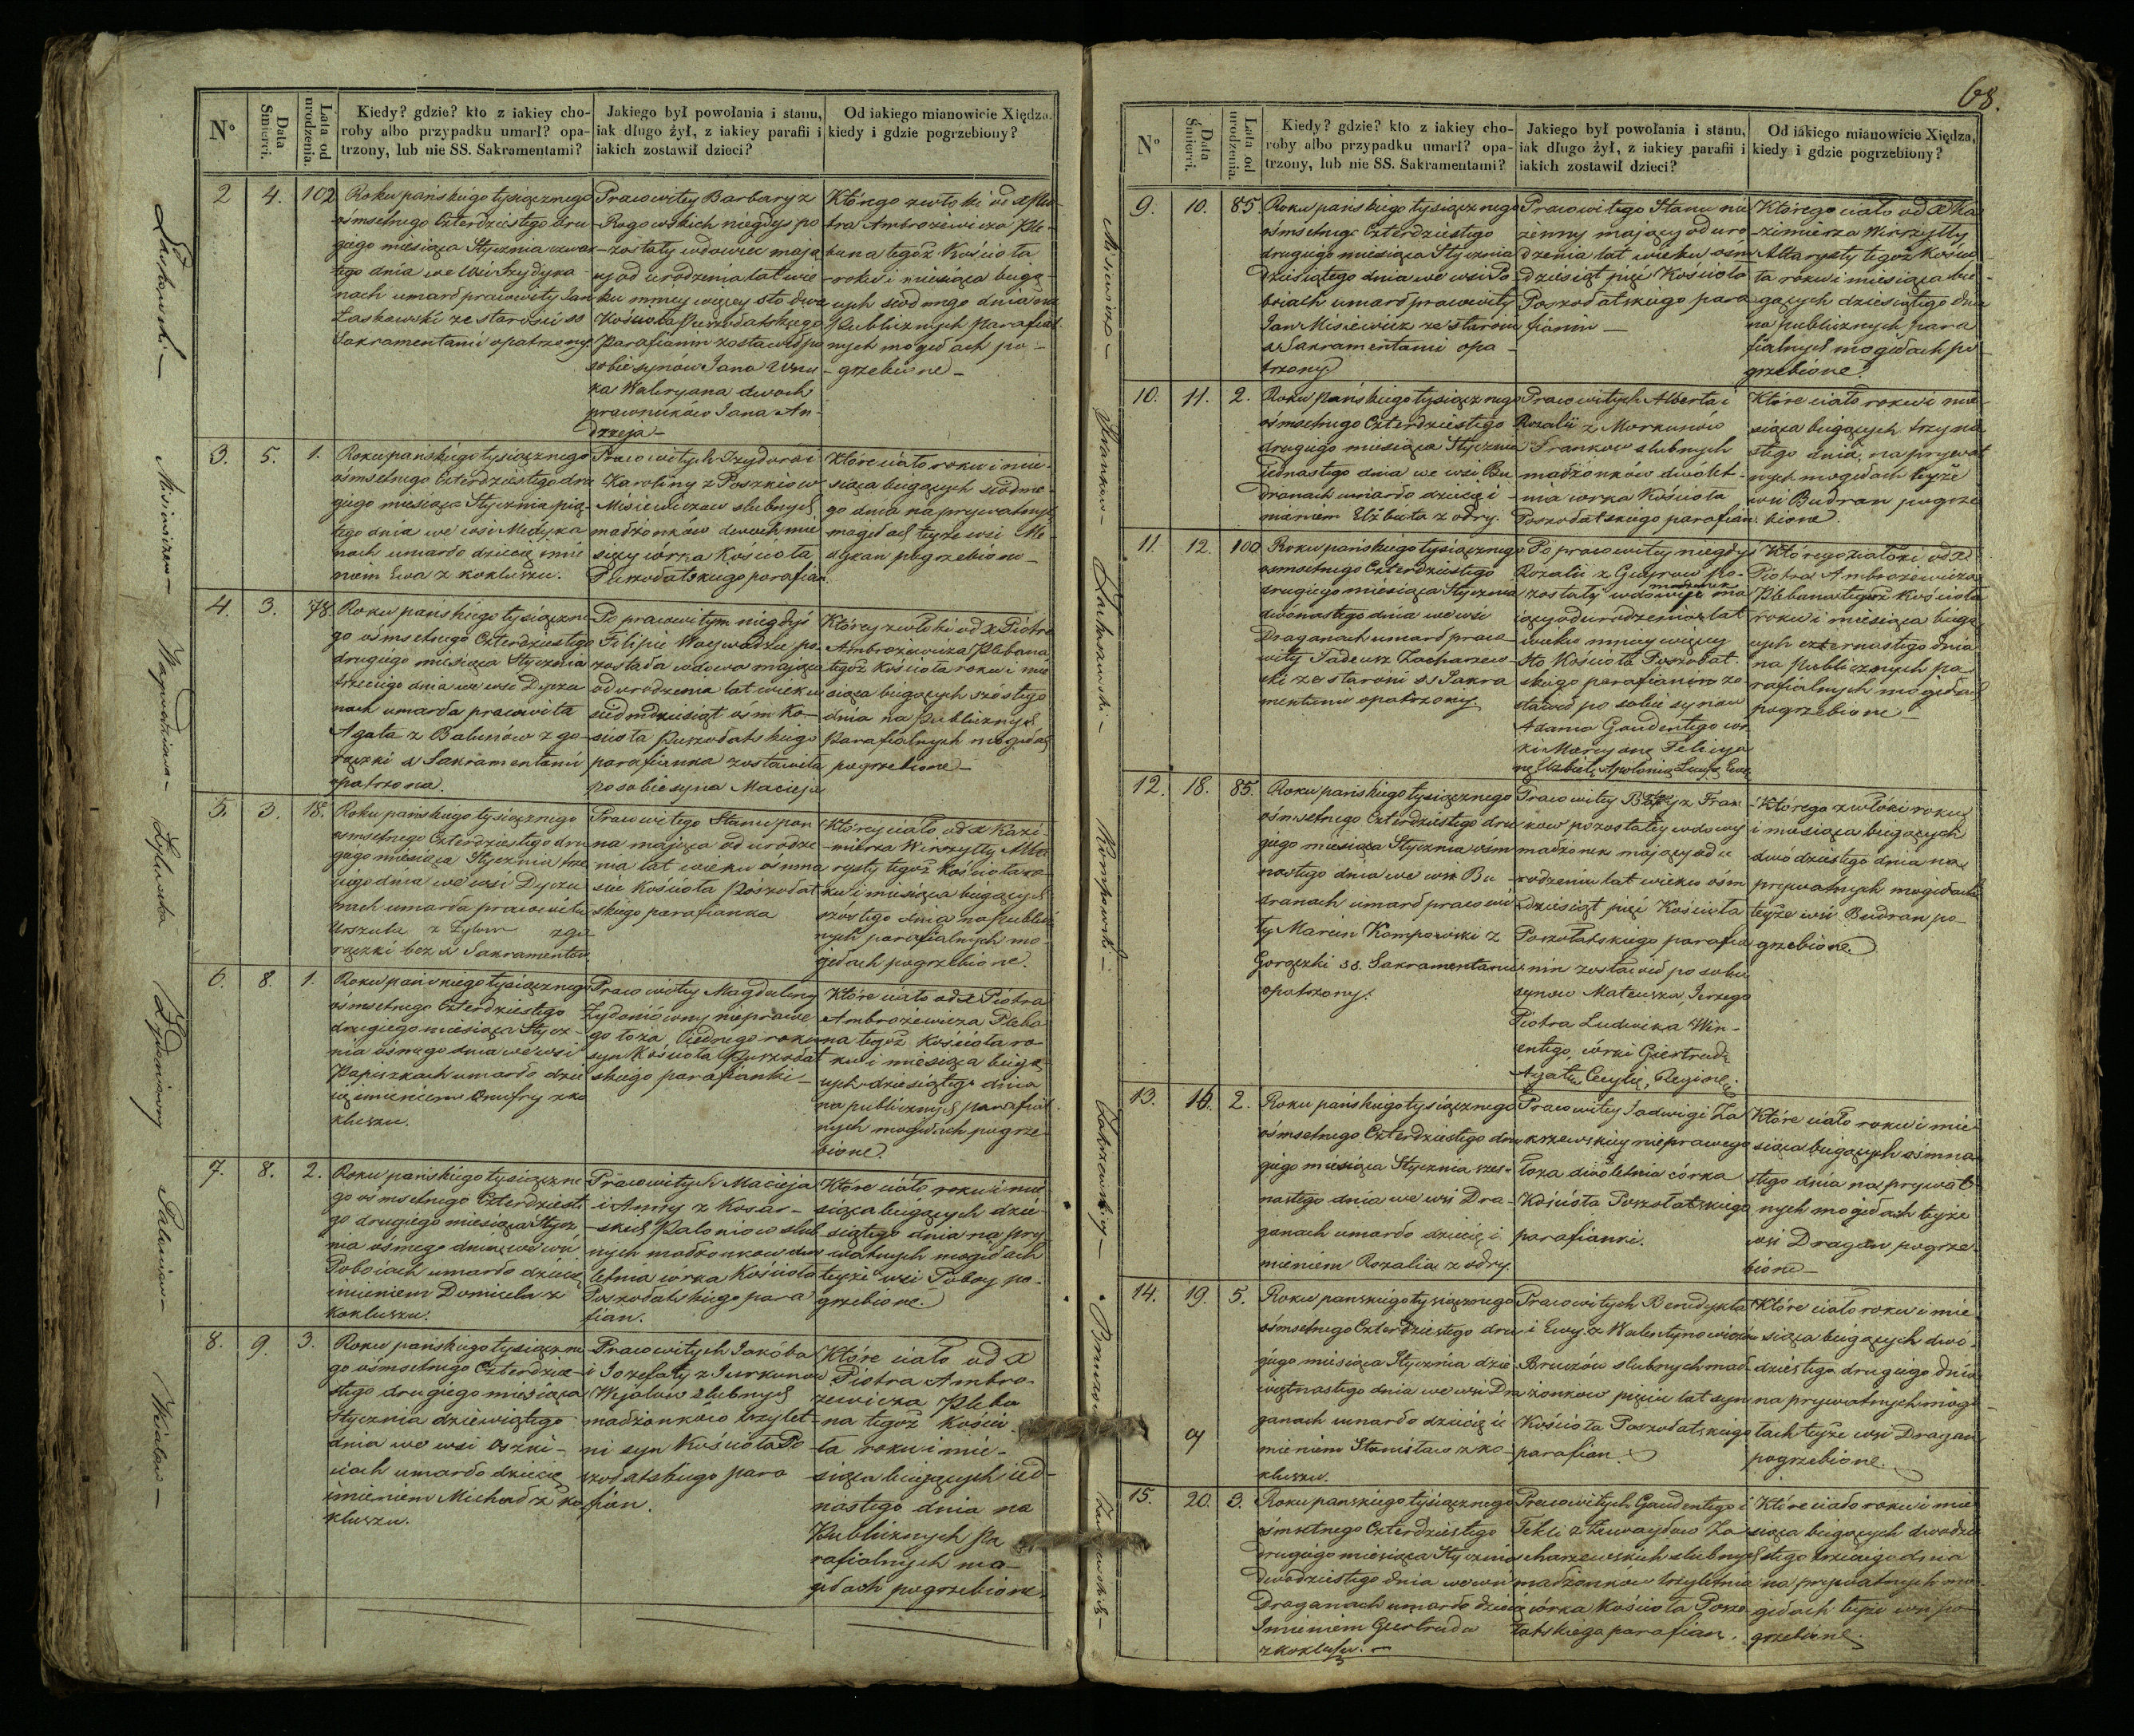 No
Data Śmierci.
Lata od urodzenia.
Kiedy? gdzie? kto z iakiey cho-
roby albo przypadku umarł? opa-
trzony, lub nie SS. Sakramentami?
Jakiego był powołania i stanu,
iak długo żył, z iakiey parafii i
iakich zostawił dzieci?
Od iakiego mianowicie Xiędza,
kiedy i gdzie pogrzebiony?
2
4.
102
Roku pańskiego tysiącznego
ośmsetnego Czterdziestego dru-
giego miesiąca Stycznia czwar-
tego dnia we Wsi
nach umarł pracowity Jan
Łaskowski ze starości ss
Sakramentami opatrzony.
Pracowitey Barbary z
Rogowskich niegdyś po
zostały wdowiec mają
cy od urodzenia lat wie
ku mniey więcey sto dwa
Kościoła Puszołatskiego
Parafianin zostawił po
sobie synów Jana Wnu
ka Waleryana dwoch
prawnuków Jana An-
drzeja
Którego zwłoki od x Pio
tra Ambrożewicza Ple-
bana tegoż Kościoła
roku i miesiąca bieżą-
cych siodmego dnia na
Publicznych Parafial
nych mogiłach po-
grzebione
3.
5.
1.
Roku pańskiego tysiącznego
ośmsetnego Czterdziestego dru
giego miesiąca Stycznia pią-
tego dnia we wsi Medyka
nach umarło dziecię imie
niem Ewa z kokluszu.
Pracowitych Izydora i
Karoliny z Poszkiow
Misiewiczow slubnych
małżonków dwoch mie
sięcy corka Kościoła
Puszołatskiego parafian.
Które ciało roku i mie-
siąca bieżących siodme-
go dnia na prywatnych
mogiłach teyże wsi Me-
dykan pogrzebione
4.
3.
78.
Roku pańskiego tysiączne
go ośmsetnego Czterdziestego
drugiego miesiąca Stycznia
trzeciego dnia we wsi Dycza
nach umarła pracowita
Agata z Balunów z go-
rączki ss Sakramentami
opatrzona.
Po pracowitym niegdyś
Filipie Waywadzie po-
została wdowa mająca
od urodzenia lat wieku
siedmdziesiąt ośm Ko-
ścioła Puszołatskiego
parafianka zostawiła
po sobie syna Macieja
Którey zwłoki od x Piotra
Ambrożewicza Plebana
tegoż Kościoła roku i mie
siąca bieżących szóstego
dnia na Publicznych
Parafialnych mogiłach
pogrzebione
5.
3.
18.
Roku pańskiego tysiącznego
ośmsetnego Czterdziestego dru
giego miesiąca Stycznia trze
ciego dnia we wsi Dycza
nach umarła pracowita
Urszula z
rączki bez ss Sakramentów
Pracowitego Stanu pan
na mająca od urodze
nia lat wieku ośmna
ście Kościoła Poszołat
skiego parafianka
Którey ciało od x Kazi
mierza Wirszytły Alta
rysty tegoż Kościoła ro
ku i miesiąca bieżących
szóstego dnia na Public
nych parafialnych mo-
giłach pogrzebione.
6.
8.
1.
Roku pańskiego tysiącznego
ośmsetnego Czterdziestego
drugiego miesiąca Stycz-
nia ósmego dnia we wsi
Papiszkach umarło dzie
cię imieniem Onufry z ko
kluszu.
Pracowitey Magdaleny
Zydoniowny niepráwe
go łoża, Jednego roku
syn Kościoła Puszołat
skiego parafianki
Które ciało od x Piotra
Ambrożewicza Pleba
na tegoż Kościoła ro-
ku i miesiąca bieżą-
cych dziesiątego dnia
na publicznych parafial
nych mogiłach pogrze-
bione.
7.
8.
2.
Roku pańskiego tysiączne
go ośmsetnego Czterdzieste
go drugiego miesiąca Stycz
nia ósmego dnia we wsi
Poboiach umarło dziecię
imieniem Domicela z
kokluszu.
Pracowitych Macieja
i Anny z Kosar-
skich Paloniow slub
nych małżonkow dwu
letnia córka Kościoła
Poszołatskiego para
fian.
Które ciało roku i mie
siąca bieżących dzie-
siątego dnia na pry
watnych mogiłach
teyże wsi Poboy po-
grzebione.
8.
9.
3.
Roku pańskiego tysiączne
go ośmsetnego Czterdzie-
stego drugiego miesiąca
Stycznia dziewiątego
dnia we wsi
ciach umarło dziecię
imieniem Michał z ko
kluszu.
Pracowitych Jakóba
i Jozefaty z Jurkunow
Wejalow slubnych
małżonków trzylet-
ni syn Kościoła Po
szołatskiego para
fian.
Które ciało od x
Piotra Ambro-
żewicza Pleba
na tegoż Kościo
ła roku i mie-
siąca bieżących ied-
nastego dnia na
Publicznych Pa
rafialnych mo-
giłach pogrzebione.
68.
No
Data Śmierci.
Lata od urodzenia.
Kiedy? gdzie? kto z iakiey cho-
roby albo przypadku umarł? opa-
trzony, lub nie SS. Sakramentami?
Jakiego był powołania i stanu,
iak długo żył, z iakiey parafii i
iakich zostawił dzieci?
Od iakiego mianowicie Xiędza,
kiedy i gdzie pogrzebiony?
9.
10.
85.
Roku pańskiego tysiącznego
ośmsetnego Czterdziestego
drugiego miesiąca Stycznia
dziesiątego dnia we wsi Po
boiach umarł pracowity
Jan Misiewicz ze starości
ss Sakramentami opa-
trzony
Pracowitego Stanu na
żenny mający od uro
dzenia lat wieku ośm
dziesiąt pięć Kościoła
Poszołatskiego para
fianin
Którego ciało od x Ka
zimierza Wirszytły
Altarysty tegoż Kościo
ła roku i miesiąca bie-
gących dziesiątego dnia
na publicznych para
fialnych mogiłach po
grzebione.
10.
11.
2.
Roku pańskiego tysiącznego
ośmsetnego Czterdziestego
drugiego miesiąca Stycznia
iednastego dnia we wsi Bu
dranach umarło dziecię i
mieniem Elżbieta z odry.
Pracowitych Alberta i
Rozalii z Markunów
Frankow slubnych
małżonków dwólet-
nia corka Kościoła
Poszołatskiego parafian.
Które ciało roku i mie-
siąca bieżących trzyna
stego dnia, na prywat
nych mogiłach teyże
wsi Budran pogrze
bione.
11.
12.
100
Roku pańskiego tysiącznego
ośmsetnego Czterdziestego
drugiego miesiąca Stycznia
dwónastego dnia we wsi
Draganach umarł praco
wity Tadeusz Zacharzew-
ski ze starości ss Sakra
mentami opatrzony.
Po pracowitey niegdyś
Rozalii z
zostały
iący od urodzenia lat
wieku mniey więcey
sto Kościoła Poszołat-
skiego parafianin zo
stawił po sobie synow
Adama Gaudentego cor
ki Maryannę Felicya
nę Elżbietę Apolonię Łucyę Ewę
Którego zwłoki od x
Piotra Ambrożewicza
Plebana tegoż Kościoła
roku i miesiąca bieżą
cych czternastego dnia
na Publicznych pa-
rafialnych mogiłach
pogrzebione
12.
18.
85.
Roku pańskiego tysiącznego
ośmsetnego Czterdziestego dru
giego miesiąca Stycznia ośm
nastego dnia we wsi Bu-
dranach umarł pracowi
ty Marcin Kompowski z
Gorączki ss. Sakramentami
opatrzony.
Pracowitey z Fran
kow pozostałey wdowy
małżonek mający od u
rodzenia lat wieku ośm
dziesiąt pięć Kościoła
Poszołatskiego parafia
nin zostawił po sobie
synow Mateusza, Jerzego
Piotra Ludwika Win-
centego, córki Giertrudę
Agatę, Cecylię, Reginę
Którego zwłoki roku
i miesiąca bieżących
dwódziestego dnia na
prywatnych mogiłach
teyże wsi Budran po-
grzebione.
13.
16.
2.
Roku pańskiego tysiącznego
ośmsetnego Czterdziestego dru
giego miesiąca Stycznia szes-
nastego dnia we wsi Dra-
ganach umarło dziecię i
mieniem Rozalia z odry.
Pracowitey Jadwigi Za
krzewskiey nieprawego
łoża dwóletnia córka
Kościoła Poszołatskiego
parafianki.
Które ciało roku i mie
siąca bieżących ośmna
stego dnia na prywat-
nych mogiłach teyże
wsi Dragan pogrze-
bione
14.
19.
5.
Roku pańskiego tysiącznego
ośmsetnego Czterdziestego dru
giego miesiąca Stycznia dzie
więtnastego dnia we wsi Dra
ganach umarło dziecię i
mieniem Stanisław z ko-
kluszu.
Pracowitych Benedykta
i Ewy z Walentynowiczów
Bruzów slubnych mał
żonkow pięciu lat syn
Kościoła Poszołatskiego
parafian.
Które ciało roku i mie
siąca bieżących dwó-
dziestego drugiego dnia
na prywatnych mogi-
łach teyże wsi Dragan
pogrzebione.
15.
20.
3.
Roku pańskiego tysiącznego
ośmsetnego Czterdziestego
drugiego miesiąca Stycznia
dwódziestego dnia we wsi
Draganach umarło dziecię
Imieniem Giertruda
z kokluszu.
Pracowitych Gaudentego i
Tekli z Za
charzewskich slubnych
małżonków trzyletnia
córka Kościoła Poszo
łatskiego parafian.
Które ciało roku i mie
siąca bieżących dwódzie
stego trzeciego dnia
na prywatnych mo-
giłach teyże wsi po-
grzebione.
Misiewiczow
Waywadziowa
Zydoniowny
Paloniow
Wejalow
Misiewicz
Frankow
Kompowski
Zakrzewskiey